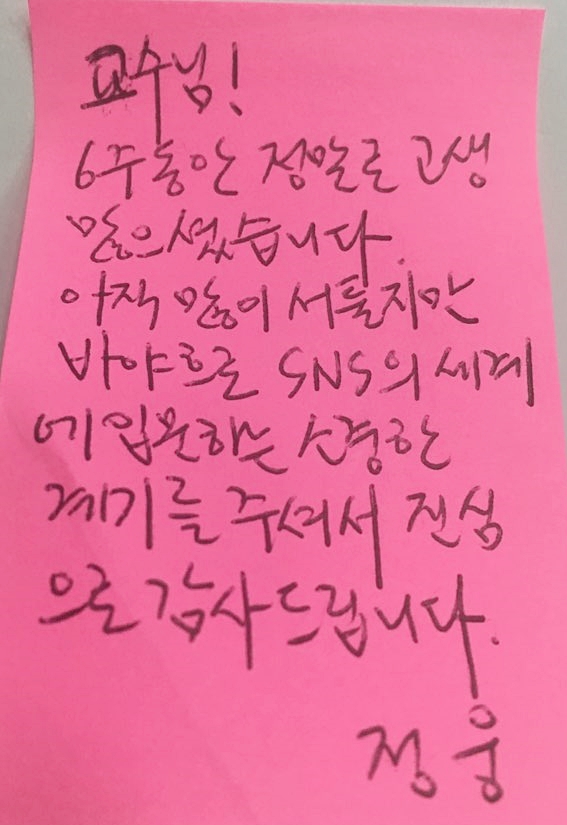 교수님!
6주동안 정말로 고생
많으셨습니다.
아직 많이 서툴지만
바야흐로 SNS의 세계
에 입문하는 소중한
계기를 주셔서 진심
으로 감사드립니다.
정웅